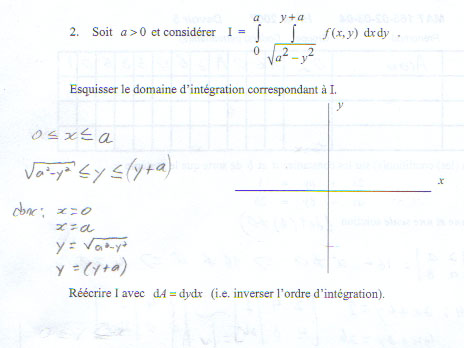 2. Soit a > 0 et considérer I = ∫₀^a ∫_{√(a² – y²)}^{y+a} f(x,y) dxdy .
Esquisser le domaine d'intégration correspondant à I.
y
x
0 ≤ x ≤ a
√(a²-y²) ≤ y ≤ (y+a)
donc: x=0
x=a
y = √(a²-y²)
y = (y+a)
Réécrire I avec dA = dydx (i.e. inverser l'ordre d'intégration).